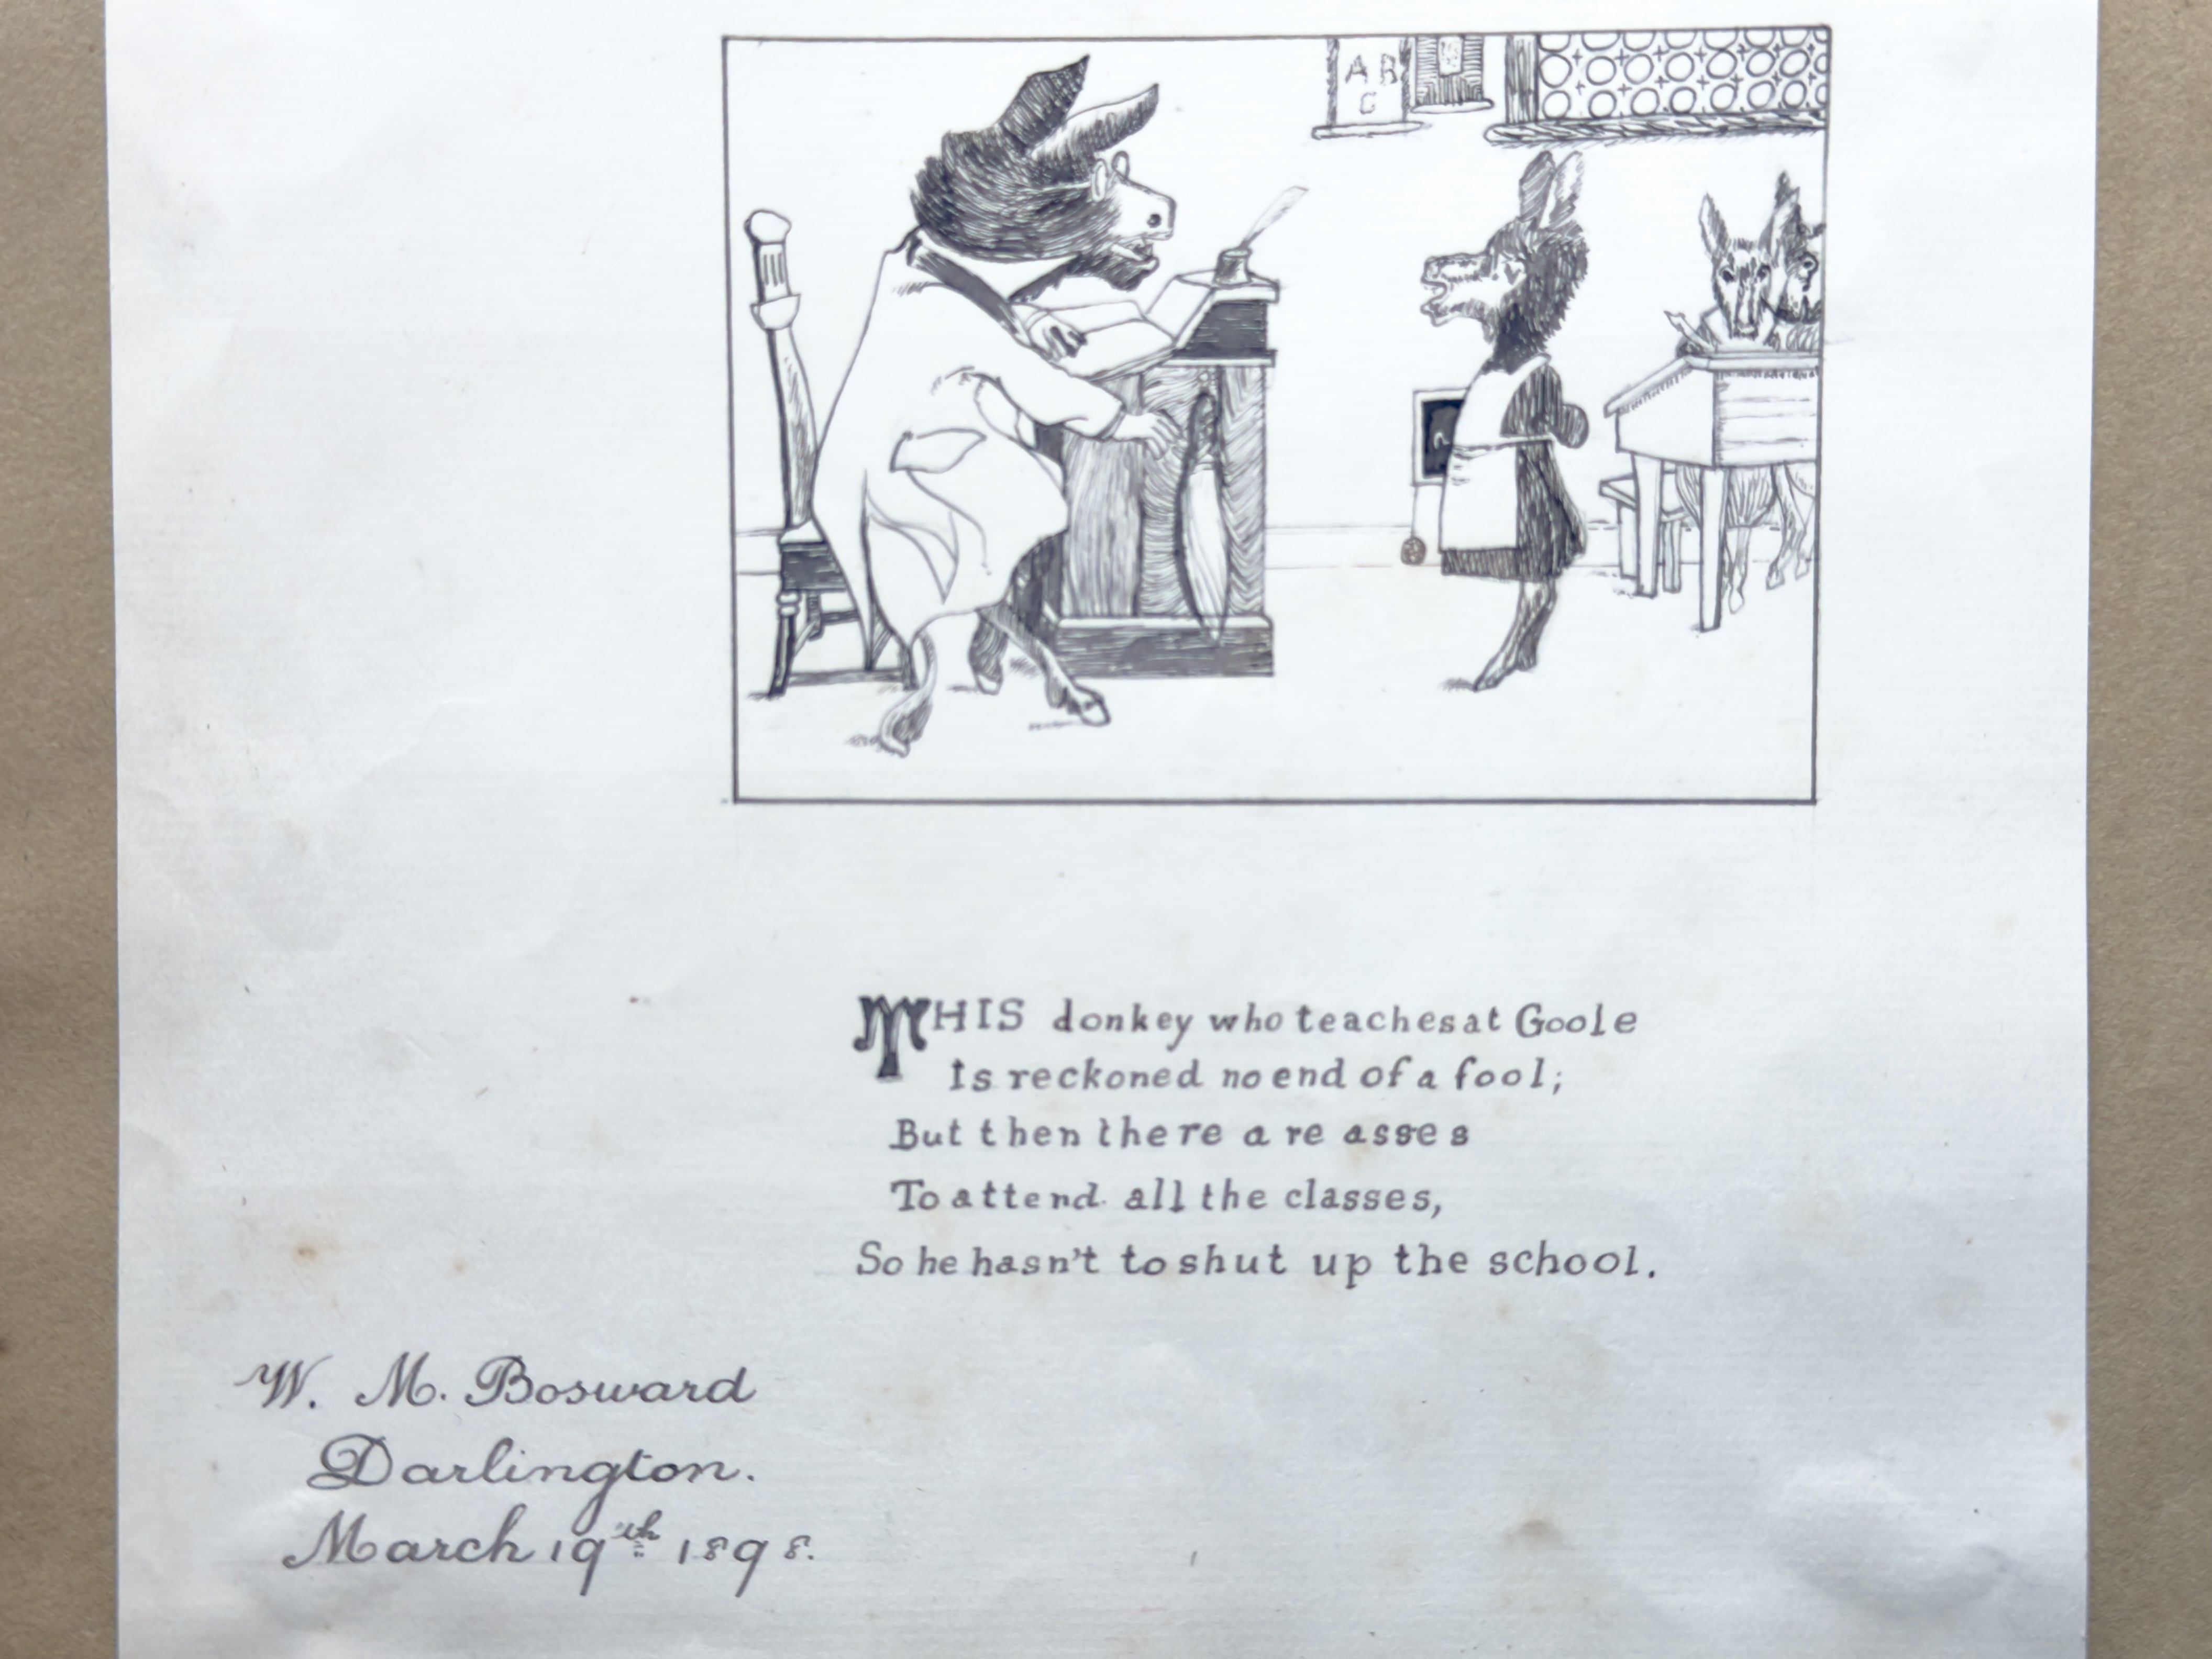 A B
C
THIS donkey who teaches at Goole
Is reckoned no end of a fool;
But then there are asses
To attend all the classes,
So he hasn't to shut up the school.
W. M. Bosward
Darlington.
March 19th 1898.